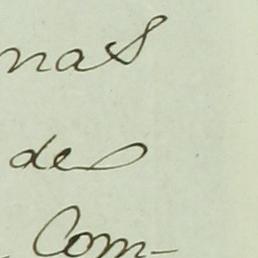 nas
de
Com-